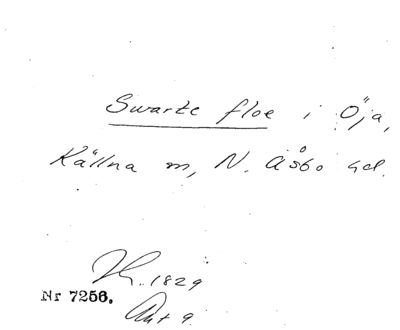 Swarte floe i Öja,
Källna m, N. Åsbo hd.
1829
Nr 7256.
Akt 9.